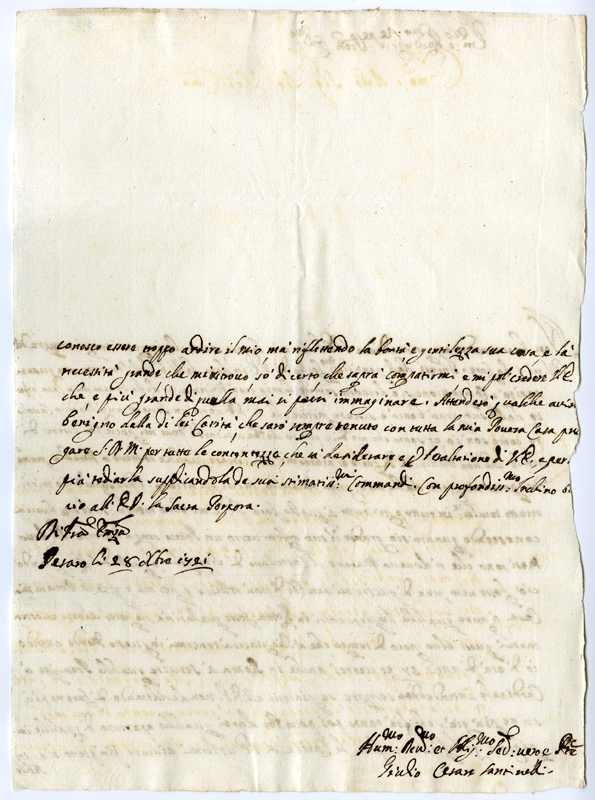 conosco essere troppo ardire il mio, mà riflettendo la bontà e gentilezza sua verso e la
necessità grande che mi ritrovo sò di certo che saprà compatirmi e mi può credere V.E.
che è più grande di quella mai si possi immaginare. Attenderò qualche
benigno dalla di lei Carità che sarò sempre tenuto con tutta la mia Povera Casa
gare S.D.M. per tutte le contentezze che sà desiderare e l'esaltatione di V.E. e per
più tediarla supplicandola de suoi stimatiss:mi Commandi. Con profondiss:mo Inchino
cio all' E.V. la Sacra Porpora.
Pesaro li 28 Xbre 1721
Hum:mo Dev:mo et Obblig:mo Ser:
Giulio Cesare Santinelli